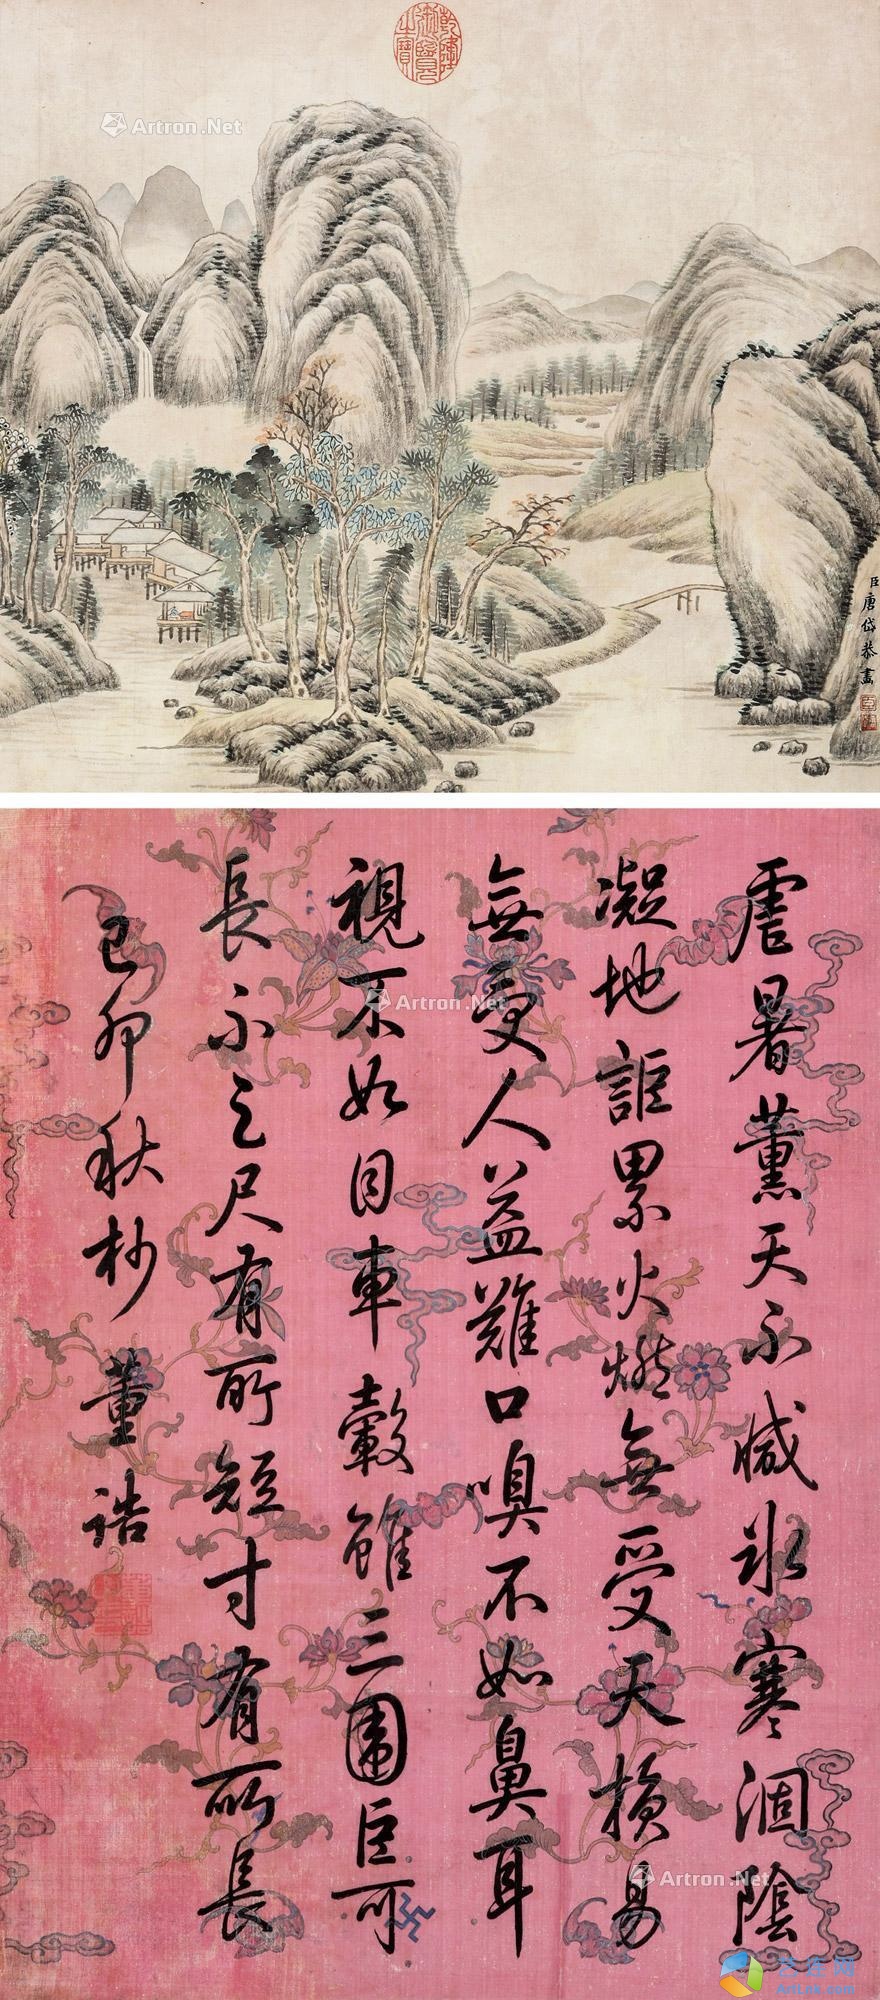 乾隆御覽之寶
Artron.Net
臣唐岱恭畫
虐暑薰天不臧冰寒涸陰
凝地詎累火燃無受天損易
無受人益難口嗅不如鼻耳
Artron.Net
視不如目車轂雖三圍臣可
長不之尺有所短寸有所長
己卯秋杪董誥
Artron.Net
ArtLnk.com